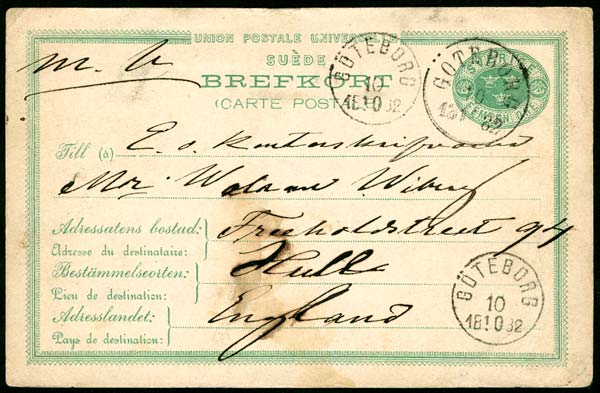 UNION POSTALE UNIVERSELLE
SUÈDE
BREFKORT
(CARTE POSTALE)
m. b
GÖTEBORG
10
18 10 82
GÖTEBORG
Till (à)
E. o.
Mr
Adressatens bostad: Freeholdstreet 94
Adresse du destinataire:
Bestämmelseorten: Hull
Lieu de destination:
Adresslandet: England
Pays de destination:
GÖTEBORG
10
18 10 82